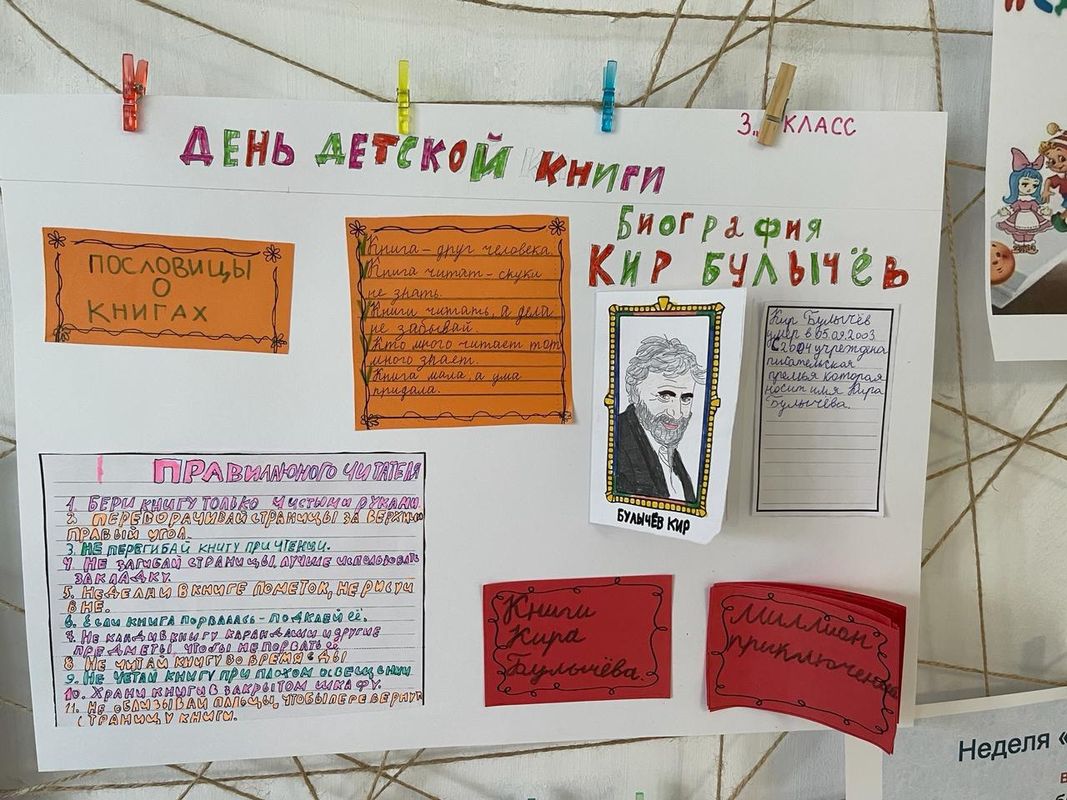 3 КЛАСС
ДЕНЬ ДЕТСКОЙ КНИГИ
ПОСЛОВИЦЫ
О
КНИГАХ
Книга - друг человека.
Книга читат - скуки
не знать.
Книги читать, а дела
не забывай.
Кто много читает тот
много знает.
Книга мала, а ума
придала.
Биография
КИР БУЛЫЧЁВ
БУЛЫЧЁВ КИР
Кир Булычёв
умер в 05.09.2003
С 2004 учреждена
писательская
премья которая
носит имя Кира
Булычёва.
ПРАВИЛА ЮНОГО ЧИТАТЕЛЯ
1. БЕРИ КНИГУ ТОЛЬКО ЧИСТЫМИ РУКАМИ
2. ПЕРЕВОРАЧИВАЙ СТРАНИЦЫ ЗА ВЕРХНИЙ
ПРАВЫЙ УГОЛ.
3. НЕ ПЕРЕГИБАЙ КНИГУ ПРИ ЧТЕНИИ.
4. НЕ ЗАГИБАЙ СТРАНИЦЫ, ЛУЧШЕ ИСПОЛЬЗОВАТЬ
ЗАКЛАДКУ.
5. НЕ ДЕЛАЙ В КНИГЕ ПОМЕТОК, НЕ РИСУЙ
В НЕ.
6. ЕСЛИ КНИГА ПОРВАЛАСЬ - ПОДКЛЕЙ ЕЁ.
7. НЕ КЛАДИ В КНИГУ КАРАНДАШИ И ДРУГИЕ
ПРЕДМЕТЫ, ЧТОБЫ НЕ ПОРВАТЬ ЕЁ
8. НЕ ЧИТАЙ КНИГУ ВО ВРЕМЯ ЕДЫ
9. НЕ ЧЕТАЙ КНИГУ ПРИ ПЛОХОМ ОСВЕЩЕНИИ
10. ХРАНИ КНИГИ В ЗАКРЫТОМ ШКАФУ.
11. НЕ ОБЛИЗЫВАЙ ПАЛЬЦЫ, ЧТОБЫ ПЕРЕВЕРНУТЬ
СТРАНИЦУ КНИГИ.
Книги
Кира
Булычёва.
Миллион
приключений
Неделя «